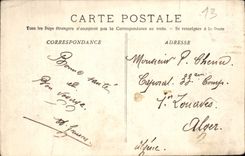 13
CARTE POSTALE
Tous les Pays étrangers n'acceptent pas la Correspondance au recto. — Se renseigner à la Poste
CORRESPONDANCE
ADRESSE
Bonne santé
et
Monsieur P.
Caporal 33ème Comp.
1er Zouaves
Alger
Algérie